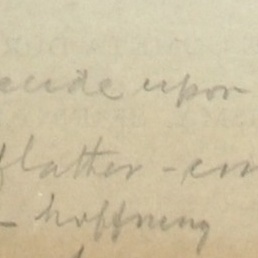 ecide upon
flatter - em
- hoffnung